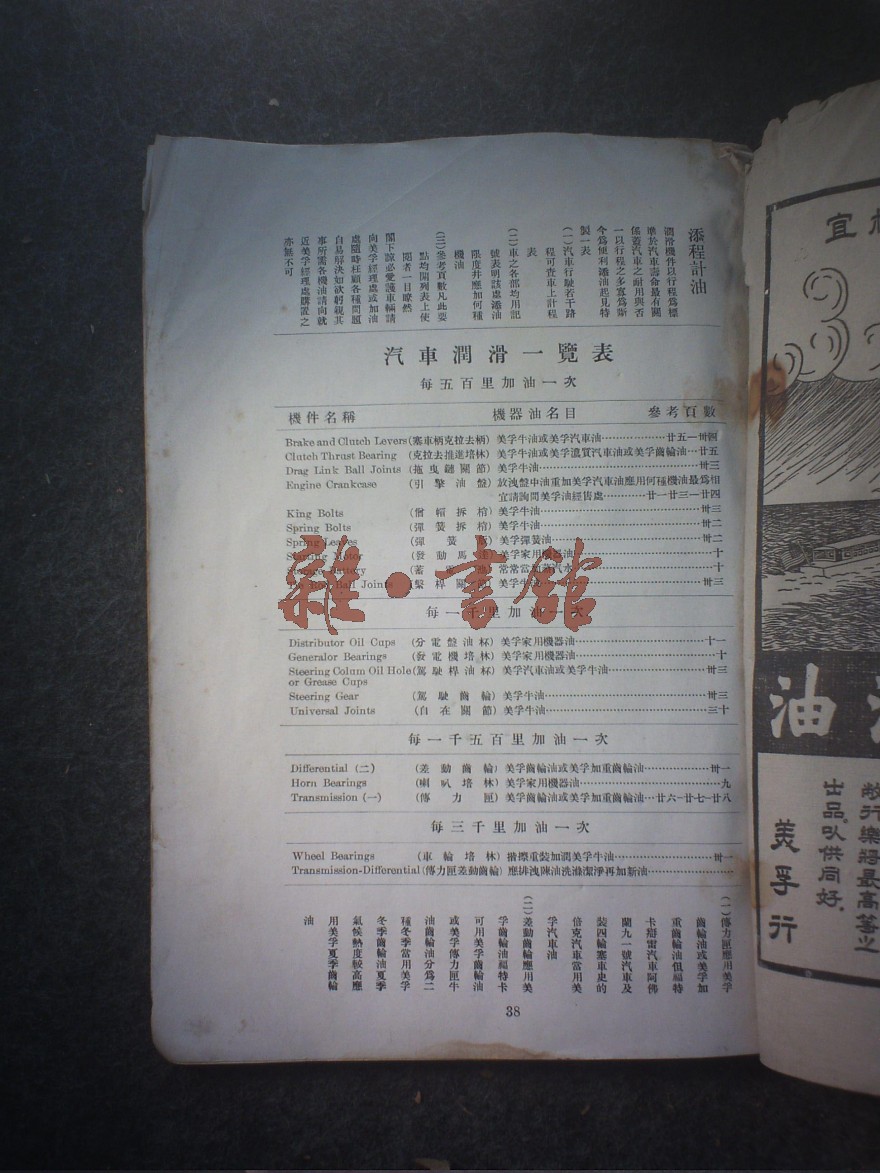 添程計油
潤滑機件以行程爲標
準於汽車壽命最有關
係蓋汽車之耐用與否
一以行程之多寡爲斷
今爲便利添油起見特
製一表
(一)汽車行駛若干路
程可查車上計程
表
(二)車之各部均用記
號表明該處添油
限度幷應加何種
機油
(三)參考頁數凡此要
點均開列表上使
閱者一目瞭然
閣下諒必愛護車輛請
向美孚經理處或加油
處隨時枉顧各種問題
自易解決如欲躬親其
事所需各機油請向就
近美孚經理處購置之
亦無不可
汽車潤滑一覽表
每五百里加油一次
機件名稱 機器油名目 參考頁數
Brake and Clutch Levers(塞車柄克拉去柄) 美孚牛油或美孚汽車油…………廿五—卅四
Clutch Thrust Bearing (克拉去推進培林) 美孚牛油或美孚濃質汽車油或美孚齒輪油…廿五
Drag Link Ball Joints (拖曳鏈關節) 美孚牛油…………卅三
Engine Crankcase (引擎油盤) 放洩盤中油重加美孚汽車油應用何種機油最爲相
宜請詢問美孚油經售處…………廿一—廿三—廿四
King Bolts (僧帽拆棺) 美孚牛油…………卅三
Spring Bolts (彈簧拆棺) 美孚牛油…………卅二
Spring Leaves (彈簧) 美孚彈簧油…………卅二
Starting Motor (發動馬達) 美孚家用機器油…………十
Storage Battery 常常當加蒸汽水…………十
Tie Rod Ball Joints (繫桿關節) 美孚牛油…………卅三
每一千里加油一次
Distributor Oil Cups (分電盤油杯) 美孚家用機器油…………十一
Generalor Bearings (發電機培林) 美孚家用機器油…………十
Steering Colum Oil Hole(駕駛桿油杯) 美孚汽車油或美孚牛油…………卅三
or Grease Cups
Steering Gear (駕駛齒輪) 美孚牛油…………卅三
Universal Joints (自在關節) 美孚牛油…………三十
每一千五百里加油一次
Differential (二) (差動齒輪) 美孚齒輪油或美孚加重齒輪油…………卅一
Horn Bearings (喇叭培林) 美孚家用機器油…………九
Transmission (一) (傳力匣) 美孚齒輪油或美孚加重齒輪油…廿六—廿七—廿八
每三千里加油一次
Wheel Bearings (車輪培林) 揩擦重裝加潤美孚牛油…………卅一
Transmission-Differential(傳力匣差動齒輪) 應排洩陳油洗滌潔淨再加新油…………
(一)傳力匣應用美孚
齒輪油或美孚加
重齒輪油但福特
卡辯雷汽車阿佛
蘭九一號汽車及
裝四輪塞車史的
倍克汽車當用美
孚汽車油
(二)差動齒輪應用美
孚齒輪油福特卡
可用美孚齒輪油
或美孚傳力匣牛
油齒輪油分爲二
種冬季當用美孚
冬季齒輪油夏季
氣候熱度較高應
用美孚夏季齒輪
油
38
雜·書館
宜
油
敝行樂將最高等之
出品以供同好
美孚行